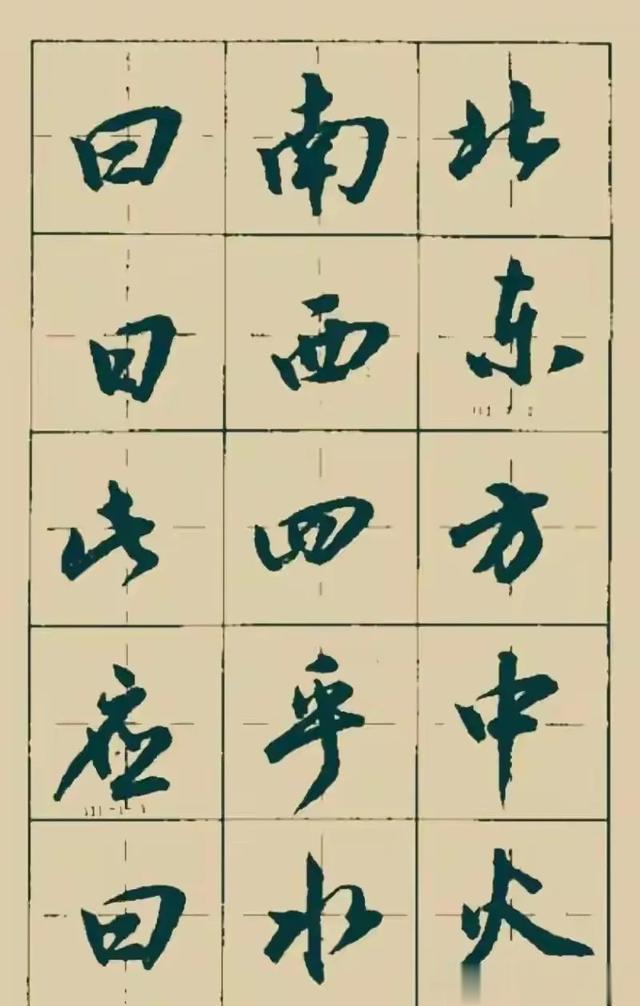 曰南北
曰西东
此四方
应乎中
曰水火